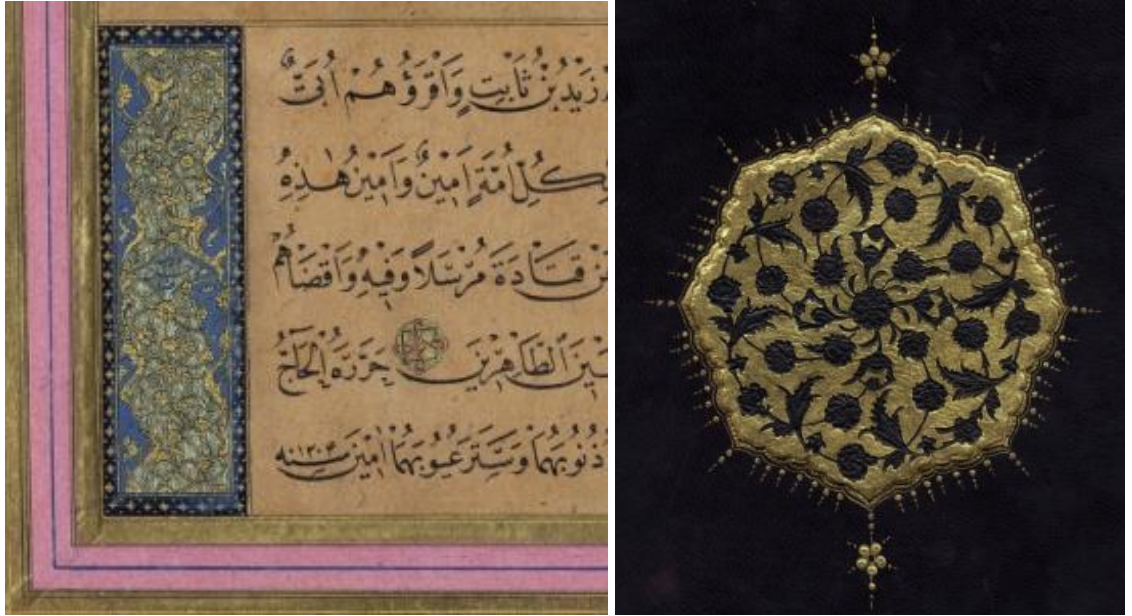 زَيْدُ بْنُ ثَابِتٍ وَاَقْرَؤُهُمْ اُبَيٌّ
لِكُلِّ اُمَّةٍ اَمِينٌ وَاَمِينُ هٰذِهِ
قَتَادَةَ مُرْسَلًا وَفِيهِ وَاَقْضَاهُمْ
الطَّاهِرِينَ حَرَّرَهُ الْحَاجُّ
ذُنُوبَهُمَا وَسَتَرَ عُيُوبَهُمَا اٰمِينَ سنه ١٢٠٣